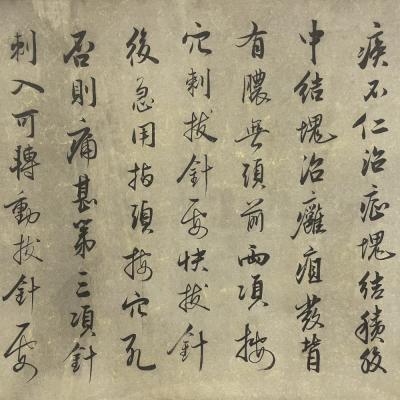 痰不仁治症塊結積啟
中結塊治癰疽發背
有膿無頭前兩項按
穴刺拔針要快拔針
後急用指頭按穴孔
否則痛甚第三項針
刺入可轉動拔針要